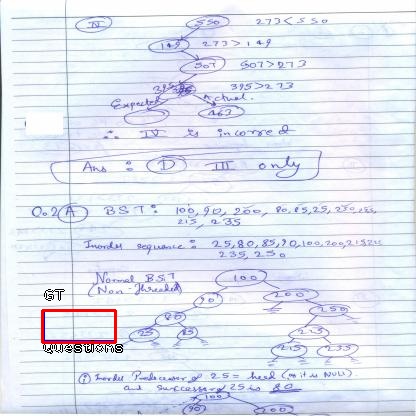 N 550 273 < 550
149 273 > 149
507 507 > 273
395 395 > 273
Expected Actual.
463
∴ IV is incorrect
Ans : D III only
Q.2 A BST : 100, 90, 200, 80, 85, 25, 250, 225,
215, 235
Inorder sequence : 25, 80, 85, 90, 100, 200, 215
235, 250
Normal BST 100
(Non-Threaded) 90 200
GT
80 250
25 85 225
215 235
Questions
(i) Inorder Predecessor of 25 = head (as it is NULL).
and successor of 25 is 80
100
90 200